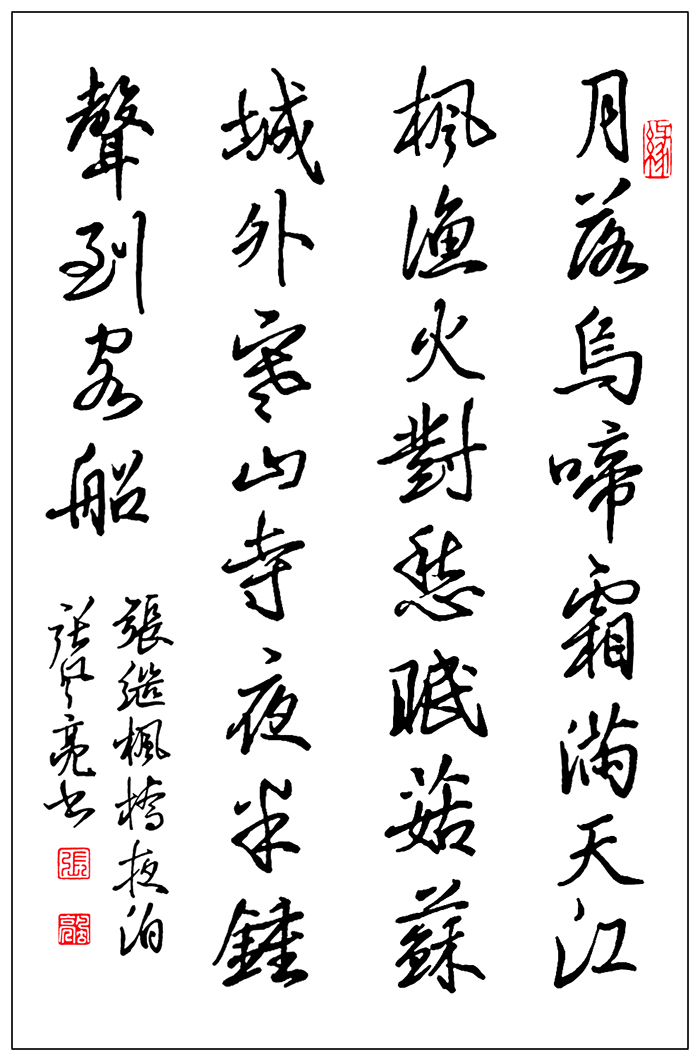 緣
月落烏啼霜滿天江
楓漁火對愁眠菇蘇
城外寒山寺夜半鍾
聲到客船
張继楓橋夜泊
张亮书
張